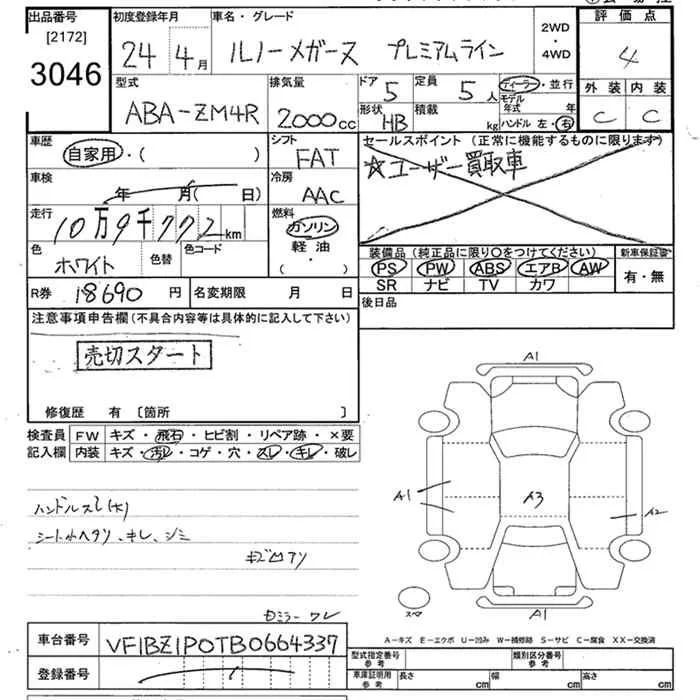 出品番号 初度登録年月 車名・グレード 2WD・4WD 評価点
[2172]
3046
24年4月 ルノーメガーヌ プレミアムライン 4
型式 排気量 ドア 5 定員 5人 ディーラー・並行 外装 内装
モデル年式 年
ABA-ZM4R 2000cc 形状 HB 積載 kg ハンドル 左・右 C C
車歴 シフト セールスポイント(正常に機能するものに限ります)
自家用・( ) FAT ☆ユーザー買取車
車検 冷房
年 月( 日) AAC
走行 燃料
10万9千772km ガソリン
軽油
(・)
色 色替 色コード 装備品(純正品に限り○をつけてください) 新車保証書
ホワイト PS PW ABS エアB AW 有・無
SR ナビ TV カワ
R券 18690円 名変期限 月 日 後日品
注意事項申告欄(不具合内容等は具体的に記入して下さい)
売切スタート
修復歴 有 [箇所 ]
検査員 FW キズ・飛石・ヒビ割・リペア跡・×要
記入欄 内装 キズ・汚レ・コゲ・穴・スレ・キレ・破レ
A1
A1 A3 A2
A1
スペア
ハンドルスレ(大)
シート小ヘタリ、キレ、シミ
キズ凹アリ
ミラー ワレ
A-キズ E-エクボ U-凹み W-補修跡 S-サビ C-腐食 XX-交換済
車台番号 VF1BZ1P0TB0664337
登録番号
型式指定番号 参考 類別区分番号 参考
車庫証明用 参考 長さ cm 幅 cm 高さ cm